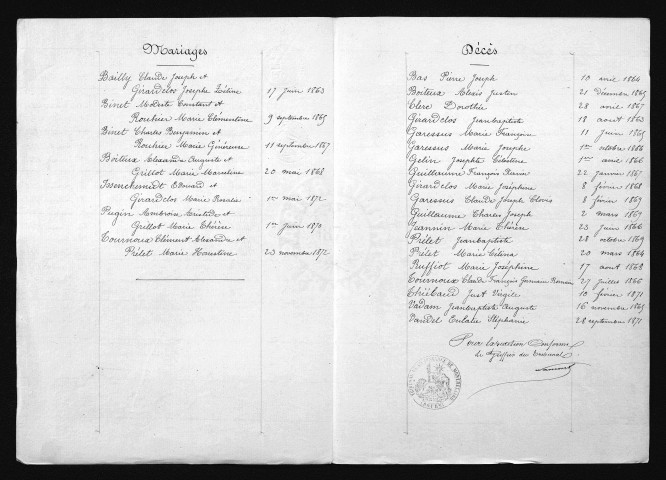 Mariages
Bailly Claude Joseph et
Girardclos Josephe Zéline 17 juin 1863
Binet Modeste Constant et
Rouhier Marie Clémentine 9 septembre 1865
Binet Charles Benjamin et
Rouhier Marie Généreuse 11 septembre 1867
Boilleux Alexandre Auguste et
Grillot Marie Marceline 20 mai 1868
Issenchemidt Edouard et
Girardclos Marie Rosalie 1er mai 1872
Pugin Ambroise Aristide et
Grillot Marie Thérèse 1er juin 1870
Tournoux Clément Alexandre et
Prélet Marie Faustine 23 novembre 1872
Décès
Bas Pierre Joseph 10 avril 1864
Boiteux Alexis Justin 21 décembre 1865
Clerc Dorothée 28 avril 1867
Girardclos Jeanbaptiste 18 août 1863
Garessus Marie Françoise 11 juin 1865
Garessus Marie Josephe 1er octobre 1866
Gelin Josephte Célestine 1er avril 1866
Guillaume François Xavier 22 janvier 1867
Girardclos Marie Joséphine 8 février 1868
Garessus Claude Joseph Clovis 8 février 1869
Guillaume Charles Joseph 2 mars 1867
Jeannin Marie Thérèse 23 juin 1866
Prélet Jeanbaptiste 28 octobre 1869
Prélet Marie Célina 20 mars 1864
Ruffiot Marie Joséphine 17 août 1868
Tournoux Claude François Germain Romain 27 juillet 1866
Thiébaud Just Virgile 10 février 1871
Vadam Jeanbaptiste Auguste 16 novembre 1865
Vandel Eulalie Stéphanie 28 septembre 1871
Pour la rédaction Conforme
le Greffier du Tribunal